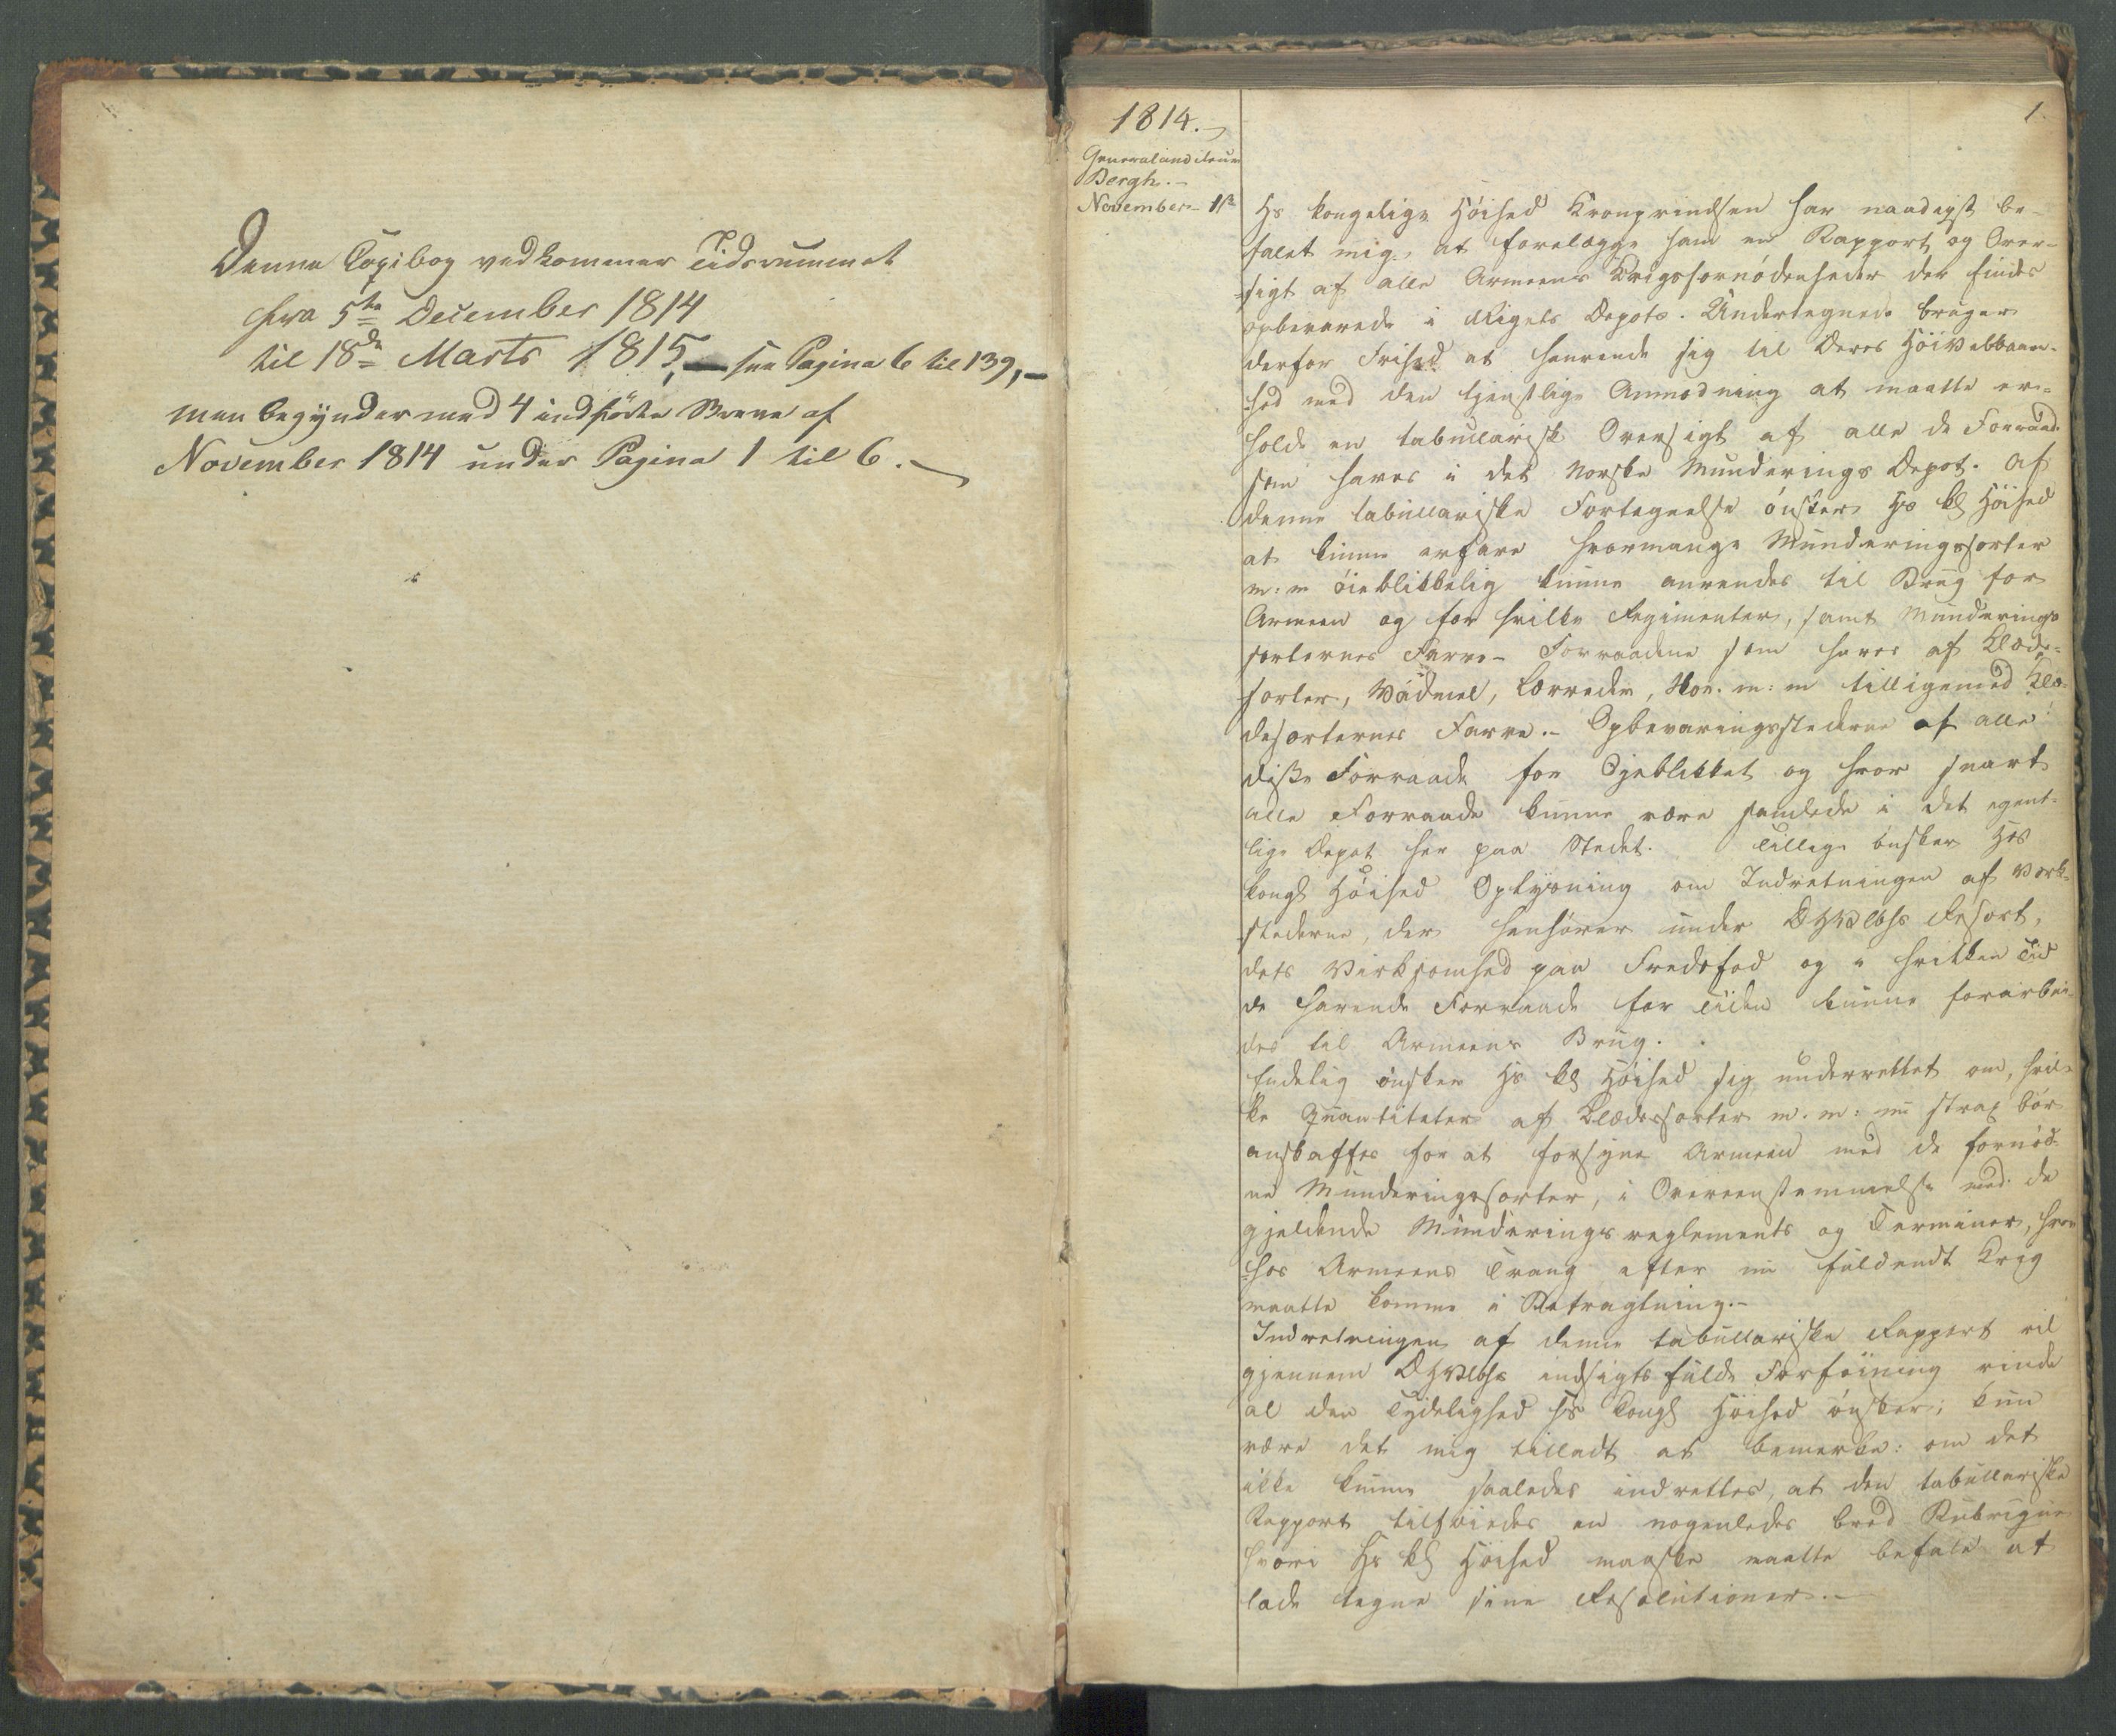 Denne Copibog vedkommer Tidsrummet
fra 5te December 1814
til 18de Marts 1815, — see Pagina 6 til 139, —
men begynder med 4 indførte Breve af
November 1814 under Pagina 1 til 6. —
1814. —
1.
Generalauditeur
Bergh. —
November 1ste
Hs kongelige Høihed Kronprindsen har naadigst be-
falet mig, at forelægge ham en Rapport og Over-
sigt af alle Armeens Krigsfornødenheder der findes
opbevarede i Rigets Depots. Undertegnede bruger
derfor Frihed at henvende sig til Deres Høivelbaaren-
hed med den tjenstlige Anmodning at maatte er-
holde en tabullarisk Oversigt af alle de Forraade
som haves i det Norske Munderings Depot. Af
denne tabullariske Fortegnelse ønsker Hs kgl Høihed
at kunne erfare hvormange Munderingssorter
m: m øieblikkelig kunne anvendes til Brug for
Armeen og for hvilke Regimenter, samt Munderings
sorternes Farve — Forraadene som haves af Klæde-
sorter, Vadmel, Lærreder, m: m tilligemed Klæ-
desorternes Farve. — Opbevaringsstederne af alle
disse Forraade for Øjeblikket og hvor snart
alle Forraade kunne være samlede i det egent-
lige Depot her paa Stedet. Tillige ønsker Hs
kongl Høihed Oplysning om Indretningen af Værk-
stederne, der henhører under DHVelbhs Resort,
dets Virksomhed paa Fredsfod og i hvilken Tid
de havende Forraade for Tiden kunne forarbei-
des til Armeens Brug.
Endelig ønsker Hs kgl Høihed sig underrettet om, hvil-
ke Quantiteter af Klædessorter m. m: nu strax bør
anskaffes for at forsyne Armeen med de fornød-
ne Munderingssorter, i Overeenstemmelse med de
gjeldende Munderings reglements og Terminer, hvor
hos Armeens Trang efter nu fuldendt Krig
maatte komme i Betragtning. —
Indretningen af denne tabullariske Rapport vil
gjennem DHVelbhs indsigtsfulde Forføining vinde
al den Tydelighed Hs kongl Høihed ønsker; kun
være det mig tilladt at bemerke: om det
ikke kunne saaledes indrettes, at den tabullariske
Rapport tilføiedes en nogenledes bred Rubrique
hvori Hs kgl Høihed maaske maatte befale at
lade tegne sine Resolutioner. —